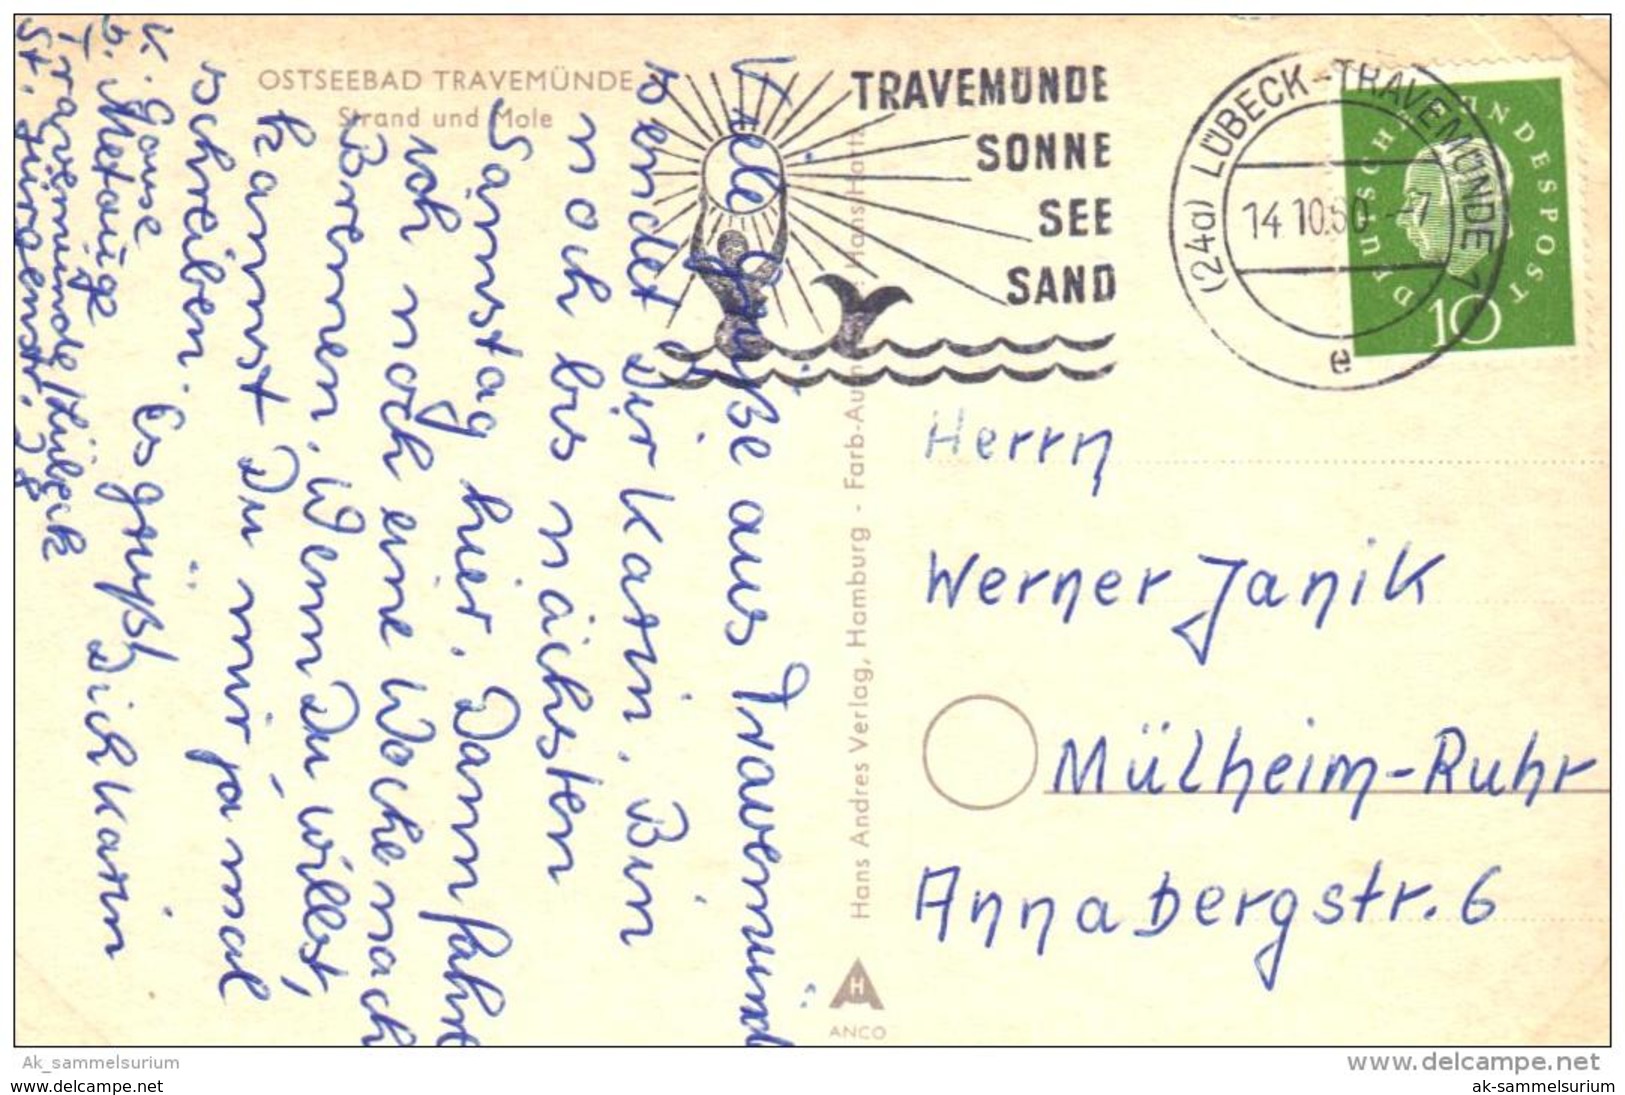 OSTSEEBAD TRAVEMÜNDE
Strand und Mole
TRAVEMÜNDE
SONNE
SEE
SAND
(24a) LÜBECK-TRAVEMÜNDE 1
14.10.60.-7
a
DEUTSCHE BUNDESPOST
10
Viele Grüße aus Travemünd
sendet Dir Karin. Bin
noch bis nächsten
Samstag hier. Dann fahre
ich noch eine Woche nach
Bremen. Wenn Du willst,
kannst Du mir ja mal
schreiben.
Es grüßt
Dich Karin
K.
b.
Travemünde/Lübeck
Hans Andres Verlag, Hamburg - Farb-Aufn.: Hans Hartz
H
ANCO
Herrn
Werner Janik
Mülheim-Ruhr
Annabergstr. 6
Ak_sammelsurium
www.delcampe.net
www.delcampe.net
ak-sammelsurium